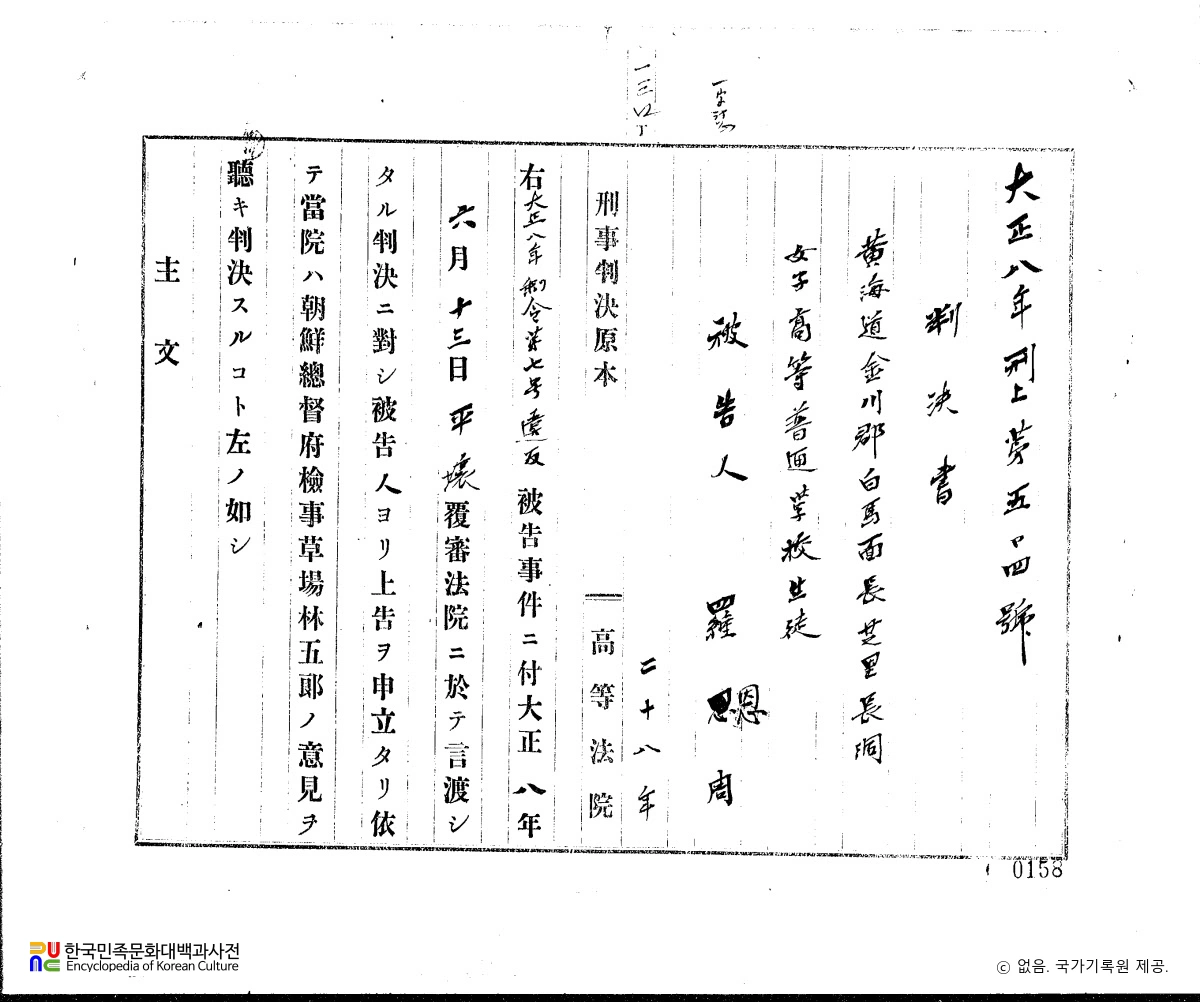 大正八年刑上第五四號
判決書
黃海道金川郡白馬面長芝里長洞
女子高等普通學校生徒
被告人 羅恩周
二十八年
刑事判決原本 高等法院
右大正八年制令第七号違反被告事件ニ付大正八年
六月十三日平壤覆審法院ニ於テ言渡シ
タル判決ニ對シ被告人ヨリ上告ヲ申立タリ依
テ當院ハ朝鮮總督府檢事草場林五郞ノ意見ヲ
聽キ判決スルコト左ノ如シ
主文
0158
한국민족문화대백과사전
Encyclopedia of Korean Culture
ⓒ 없음. 국가기록원 제공.